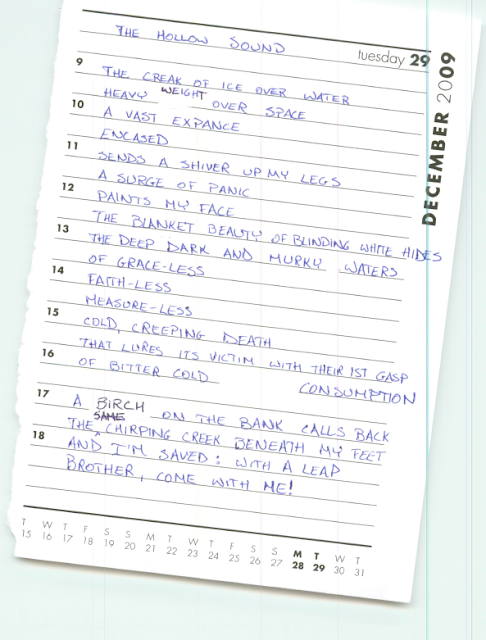 THE HOLLOW SOUND
tuesday 29
DECEMBER 2009
9
THE CREAK OF ICE OVER WATER
HEAVY WEIGHT OVER SPACE
10
A VAST EXPANCE
ENCASED
11
SENDS A SHIVER UP MY LEGS
A SURGE OF PANIC
12
PAINTS MY FACE
THE BLANKET BEAUTY OF BLINDING WHITE HIDES
13
THE DEEP DARK AND MURKY WATERS
OF GRACE-LESS
14
FAITH-LESS
MEASURE-LESS
15
COLD, CREEPING DEATH
THAT LURES ITS VICTIM WITH THEIR 1ST GASP
16
OF BITTER COLD CONSUMPTION
17
A BIRCH ON THE BANK CALLS BACK
SAME
THE CHIRPING CREEK BENEATH MY FEET
18
AND I'M SAVED: WITH A LEAP
BROTHER, COME WITH ME!
T W T F S S M T W T F S S M T W T
15 16 17 18 19 20 21 22 23 24 25 26 27 28 29 30 31